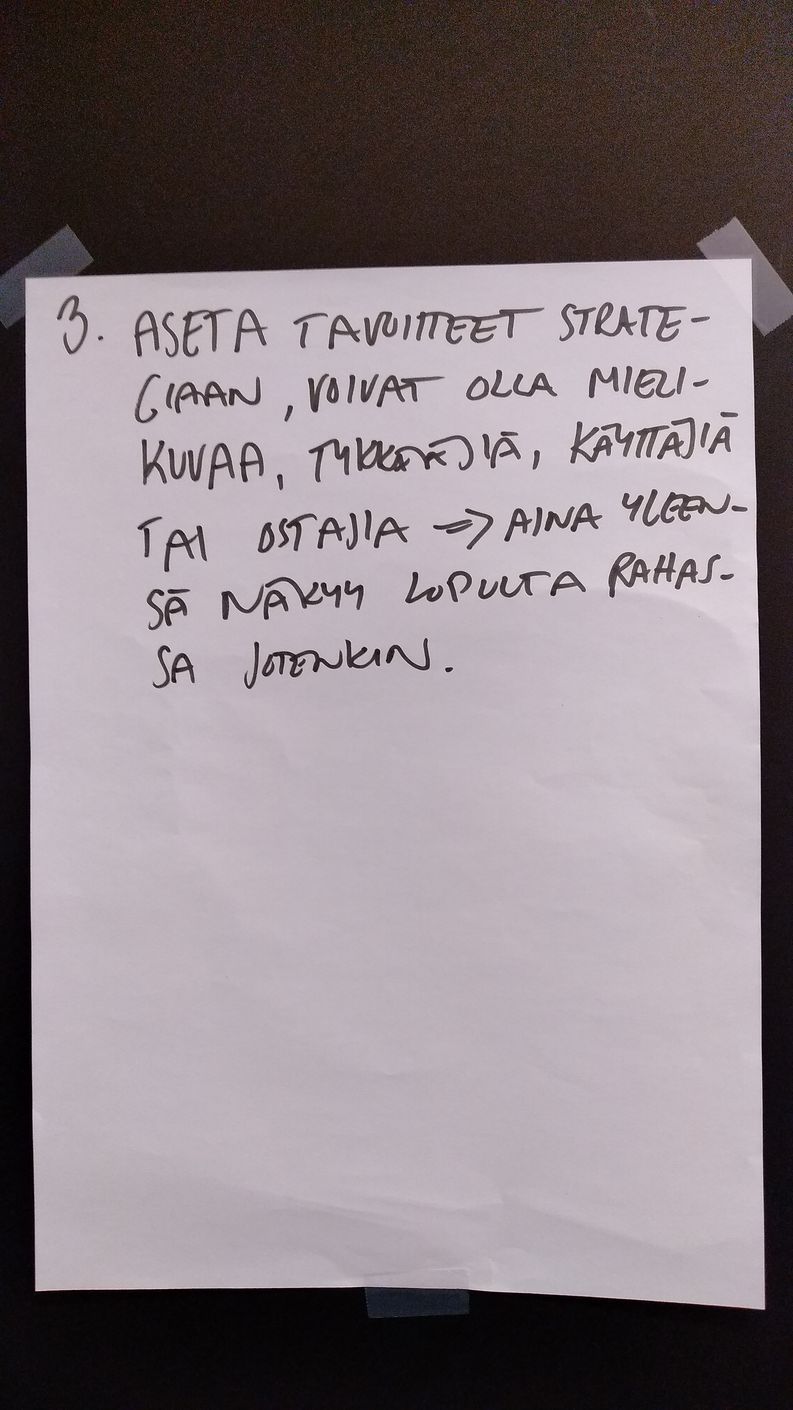 3. ASETA TAVOITTEET STRATE-
GIAAN, VOIVAT OLLA MIELI-
KUVAA, TYKKÄÄJIÄ, KÄYTTÄJIÄ
TAI OSTAJIA => AINA YLEEN-
SÄ NÄKYY LOPULTA RAHAS-
SA JOTENKIN.